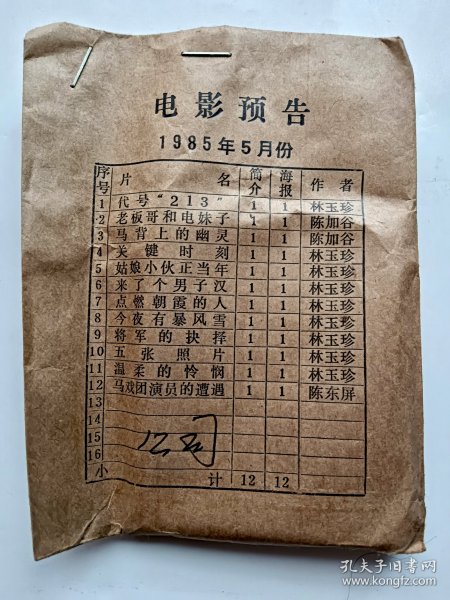 电影预告
1985年5月份
序号 片名 简介 海报 作者
1 代号“213” 1 1 林玉珍
2 老板哥和电妹子 1 1 陈加谷
3 马背上的幽灵 1 1 陈加谷
4 关键时刻 1 1 林玉珍
5 姑娘小伙正当年 1 1 林玉珍
6 来了个男子汉 1 1 林玉珍
7 点燃朝霞的人 1 1 林玉珍
8 今夜有暴风雪 1 1 林玉珍
9 将军的抉择 1 1 林玉珍
10 五张照片 1 1 林玉珍
11 温柔的怜悯 1 1 林玉珍
12 马戏团演员的遭遇 1 1 陈东屏
13
14
15 公司
16
小计 12 12
孔夫子旧书网
www.kongfz.com